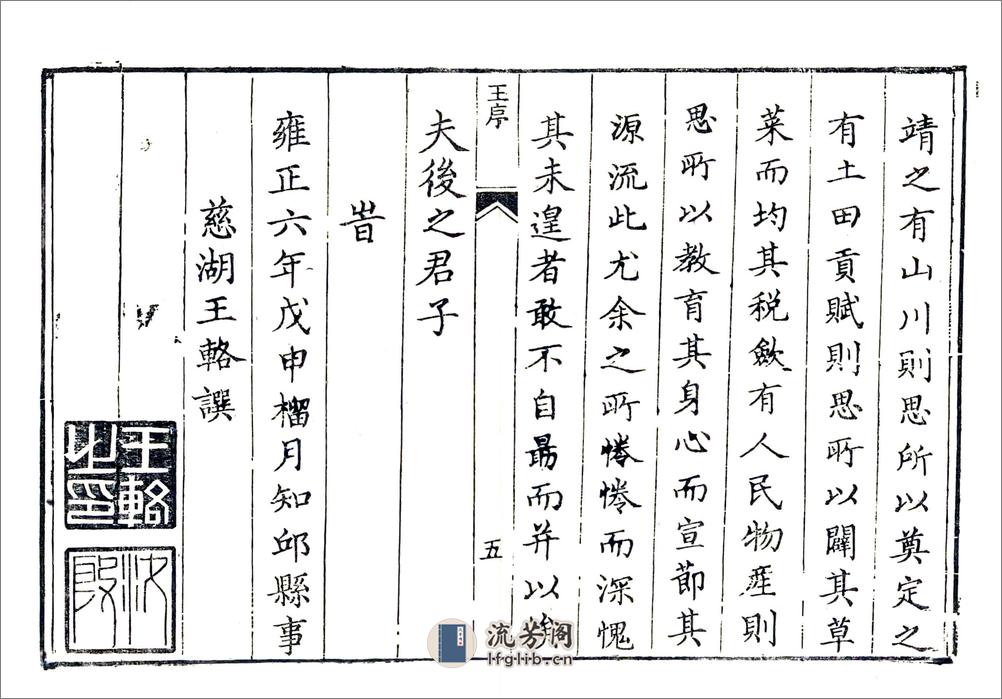 靖之有山川則思所以奠定之
有土田貢賦則思所以闢其草
菜而均其税歛有人民物産則
思所以教育其身心而宣節其
源流此尤余之所惓惓而深愧
其未遑者敢不自勗而并以
王序
五
夫後之君子
旹
雍正六年戊申榴月知邱縣事
慈湖王輅譔
王輅之印
汝殷
流芳阁
lfglib.cn